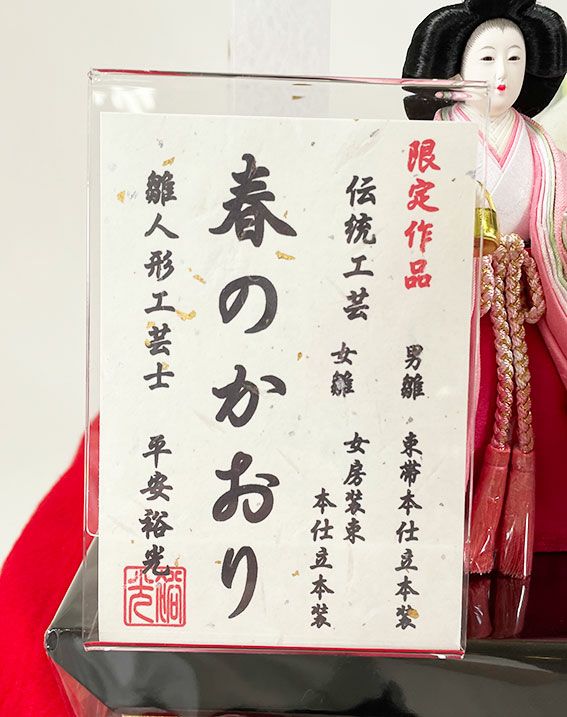 限定作品
男雛 束帯本仕立本装
伝統工芸
女雛 女房装束
本仕立本装
春のかおり
雛人形工芸士 平安裕光
裕光